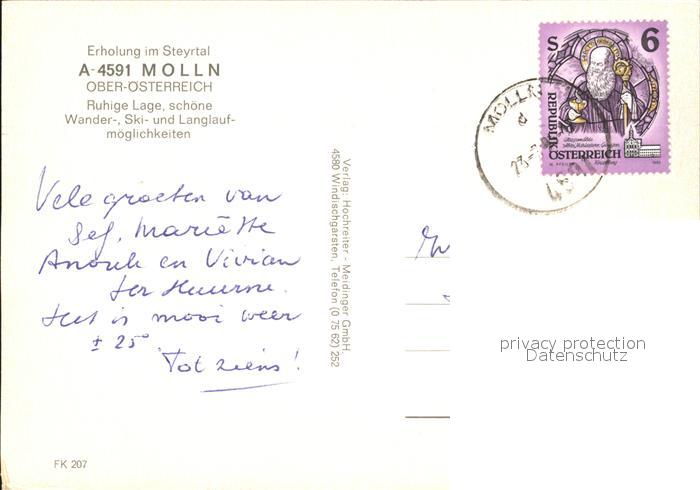 Erholung im Steyrtal
A-4591 MOLLN
OBER-ÖSTERREICH
Ruhige Lage, schöne
Wander-, Ski- und Langlauf-
möglichkeiten
Vele groeten van
Sef, Mariëtte
Anouk en Vivian
ter Huurne.
Het is mooi weer
± 25°.
Tot ziens!
FK 207
Verlag: Hochreiter - Meidinger GmbH,
4580 Windischgarsten, Telefon (0 75 62) 252
S 6
REPUBLIK
ÖSTERREICH
MOLLN
4591
privacy protection
Datenschutz